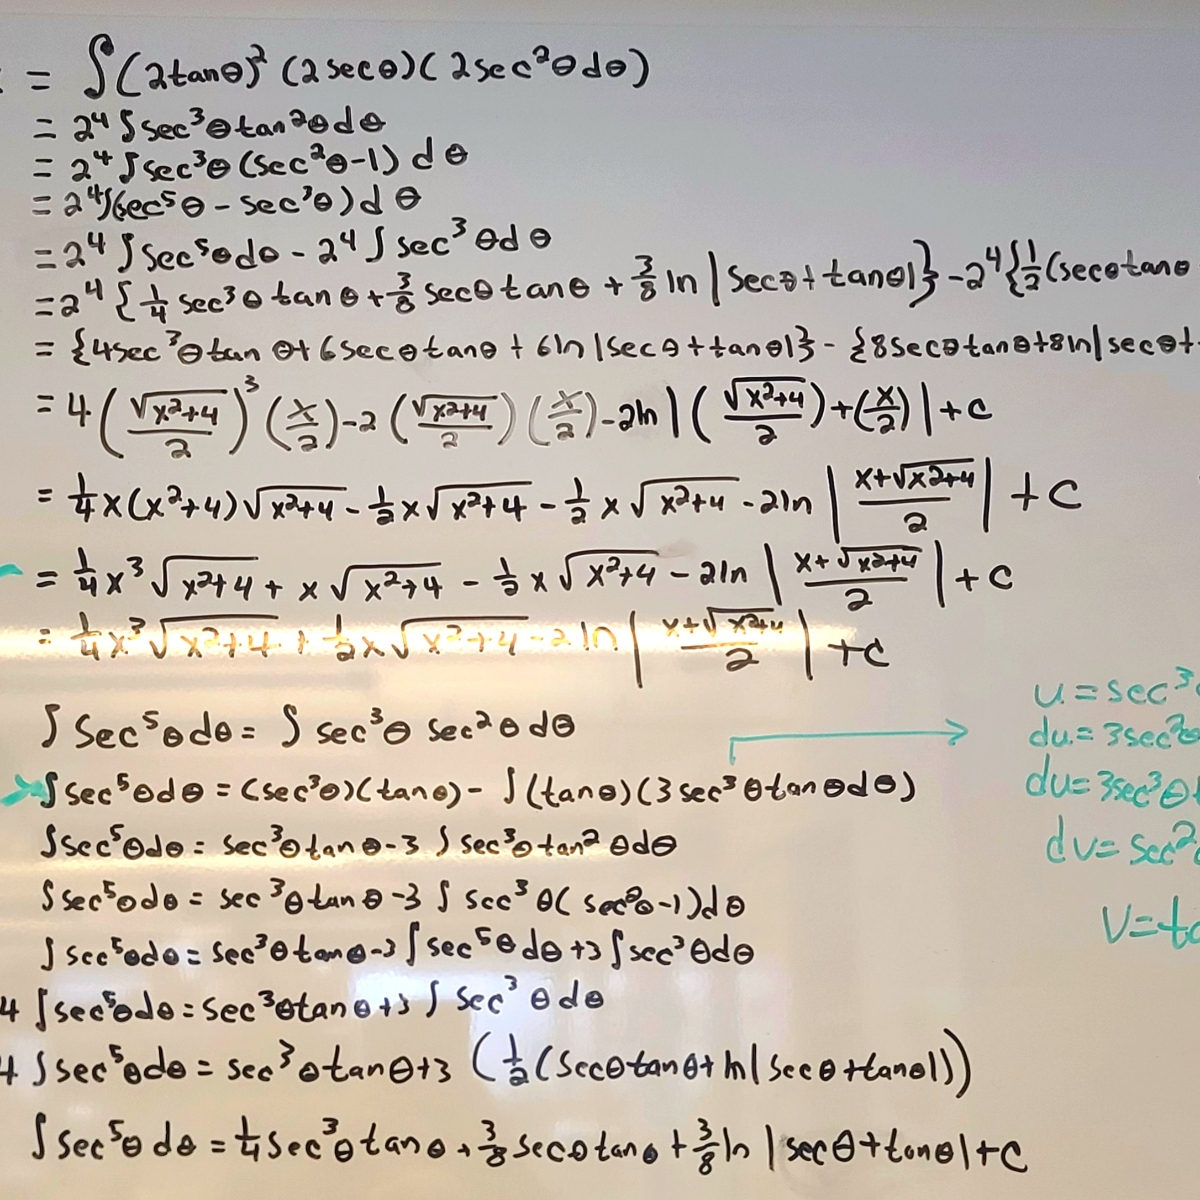 = ∫(2tanθ)² (2secθ)(2sec²θdθ)
= 2⁴ ∫sec³θtan²θdθ
= 2⁴ ∫sec³θ(sec²θ-1) dθ
= 2⁴∫(sec⁵θ - sec³θ)dθ
= 2⁴ ∫sec⁵θdθ - 2⁴ ∫ sec³ θdθ
= 2⁴ {1/4 sec³θ tanθ + 3/8 secθ tanθ + 3/8 ln |secθ + tanθ|} - 2⁴{1/2(secθtanθ
= {4sec³θtanθ + 6secθtanθ + 6ln|secθ+tanθ|} - {8secθtanθ+8ln|secθ+
= 4(√(x²+4)/2)³(x/2) - 2(√(x²+4)/2)(x/2) - 2ln|(√(x²+4)/2)+(x/2)| + C
= 1/4 x(x²+4)√(x²+4) - 1/2 x√(x²+4) - 1/2 x√(x²+4) - 2ln |(x+√(x²+4))/2| + C
= 1/4 x³√(x²+4) + x√(x²+4) - 1/2 x√(x²+4) - 2ln |(x+√(x²+4))/2| + C
= 1/4 x³√(x²+4) + 1/2 x√(x²+4) - 2ln |(x+√(x²+4))/2| + C
∫ sec⁵θdθ = ∫ sec³θ sec²θdθ
∫sec⁵θdθ = (sec³θ)(tanθ) - ∫(tanθ)(3sec³θtanθdθ)
∫sec⁵θdθ = sec³θtanθ - 3 ∫ sec³θtan²θdθ
∫sec⁵θdθ = sec³θtanθ - 3 ∫ sec³θ(sec²θ-1)dθ
∫sec⁵θdθ = sec³θtanθ - 3∫sec⁵θdθ + 3∫sec³θdθ
4 ∫sec⁵θdθ = sec³θtanθ + 3 ∫ sec³θdθ
4 ∫sec⁵θdθ = sec³θtanθ + 3 (1/2(secθtanθ + ln|secθ+tanθ|))
∫sec⁵θdθ = 1/4 sec³θtanθ + 3/8 secθtanθ + 3/8 ln |secθ+tanθ| + C
u = sec³
du = 3sec²θ
du = 3sec³θ
dv = sec²
v = ta